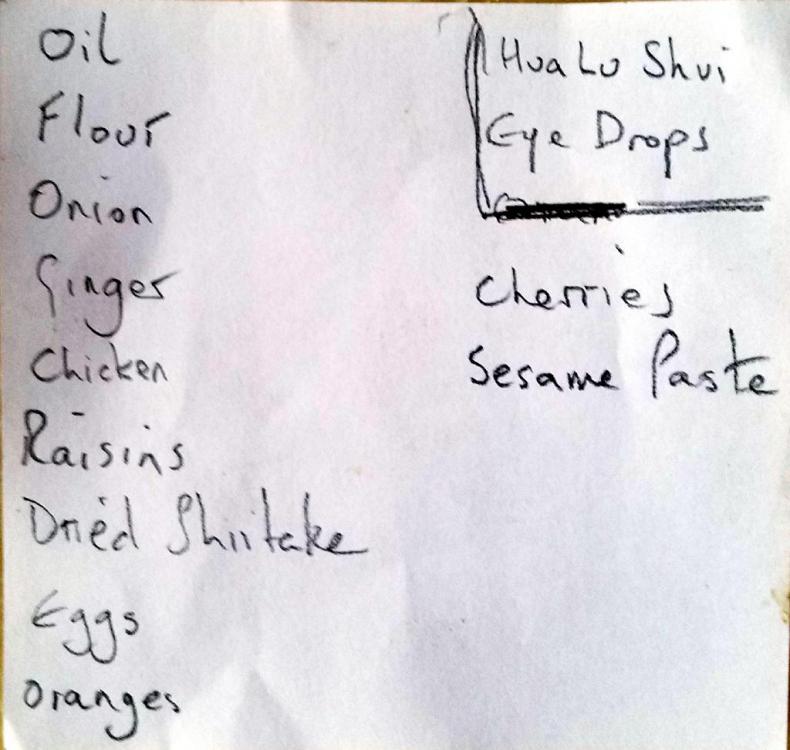 Oil
Flour
Onion
Ginger
Chicken
Raisins
Dried Shiitake
Eggs
Oranges
Hua Lu Shui
Eye Drops
Cherries
Sesame Paste